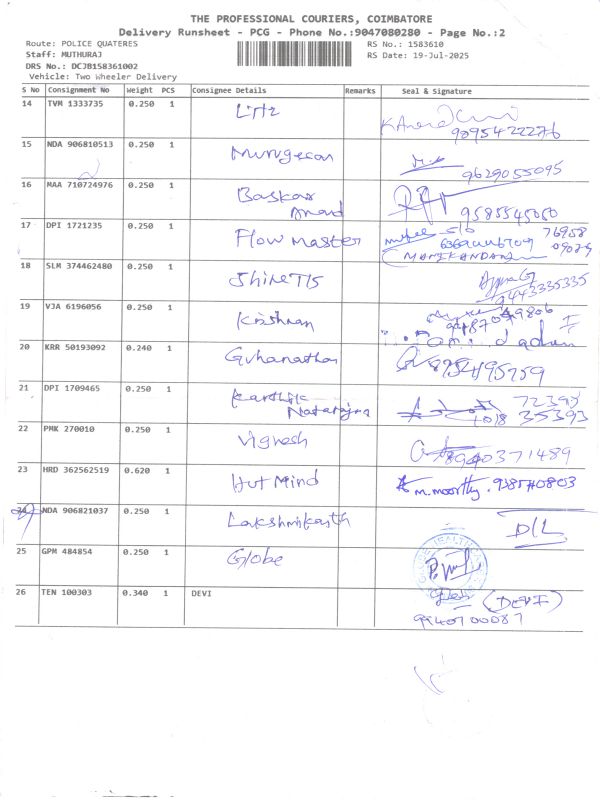 THE PROFESSIONAL COURIERS, COIMBATORE
Delivery Runsheet - PCG - Phone No.:9047080280 - Page No.:2
Route: POLICE QUATERES RS No.: 1583610
Staff: MUTHURAJ RS Date: 19-Jul-2025
DRS No.: DCJB158361002
Vehicle: Two Wheeler Delivery
S No Consignment No Weight PCS Consignee Details Remarks Seal & Signature
14 TVM 1333735 0.250 1
9895422276
15 NDA 906810513 0.250 1 Murugesan
9629055095
16 MAA 710724976 0.250 1 Baskar
Anand 9585545050
17 DPI 1721235 0.250 1 Flow master
MANIKANDAN
18 SLM 374462480 0.250 1 Shine TIS
9443335335
19 VJA 6196056 0.250 1 Krishnan
20 KRR 50193092 0.240 1 Guhanathan
8754495759
21 DPI 1709465 0.250 1 Karthik
Natarajna
22 PMK 270010 0.250 1 Vignesh
8940371489
23 HRD 362562519 0.620 1 Hut Mind m.moorthy.
24 NDA 906821037 0.250 1 Lakshmikanth D/L
25 GPM 484854 0.250 1 Globe
26 TEN 100303 0.340 1 DEVI (DEVI)
9940700087